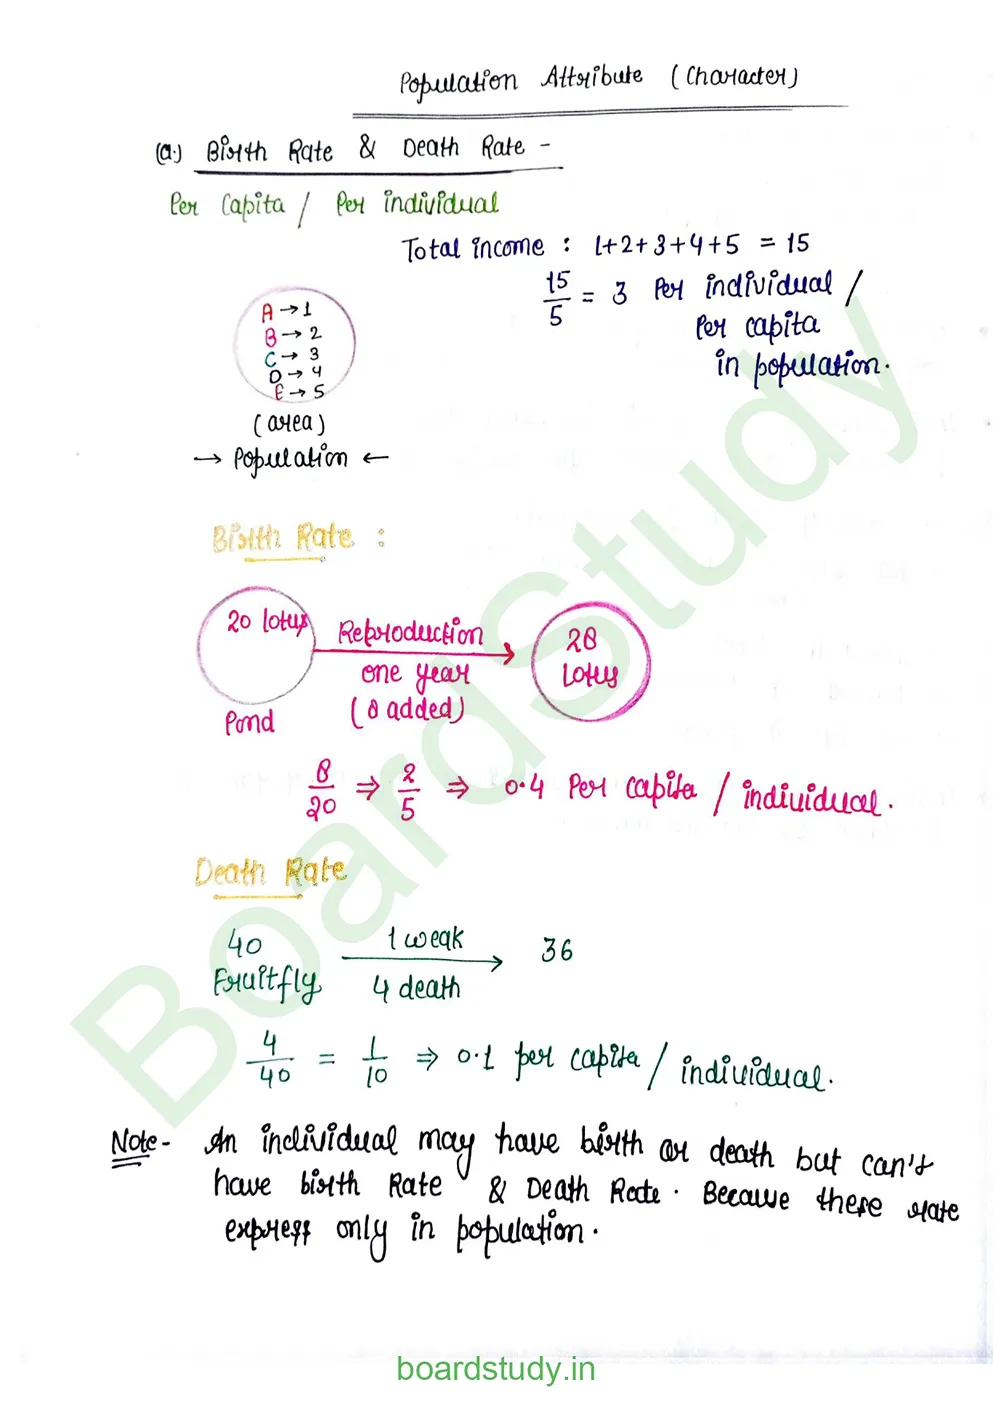 Population Attribute (Character)
(a.) Birth Rate & Death Rate -
Per Capita / Per individual
Total income : 1+2+3+4+5 = 15
15/5 = 3 Per individual /
Per capita
in population.
A → 1
B → 2
C → 3
D → 4
E → 5
(area)
→ Population ←
Birth Rate :
20 lotus
Reproduction
one year
(8 added)
28
Lotus
Pond
8/20 ⇒ 2/5 ⇒ 0.4 Per capita / individual.
Death Rate
40
Fruitfly
1 weak
4 death
36
4/40 = 1/10 ⇒ 0.1 per capita / individual.
Note - An individual may have birth or death but can't
have birth Rate & Death Rate. Because these rate
express only in population.
BoardStudy
boardstudy.in